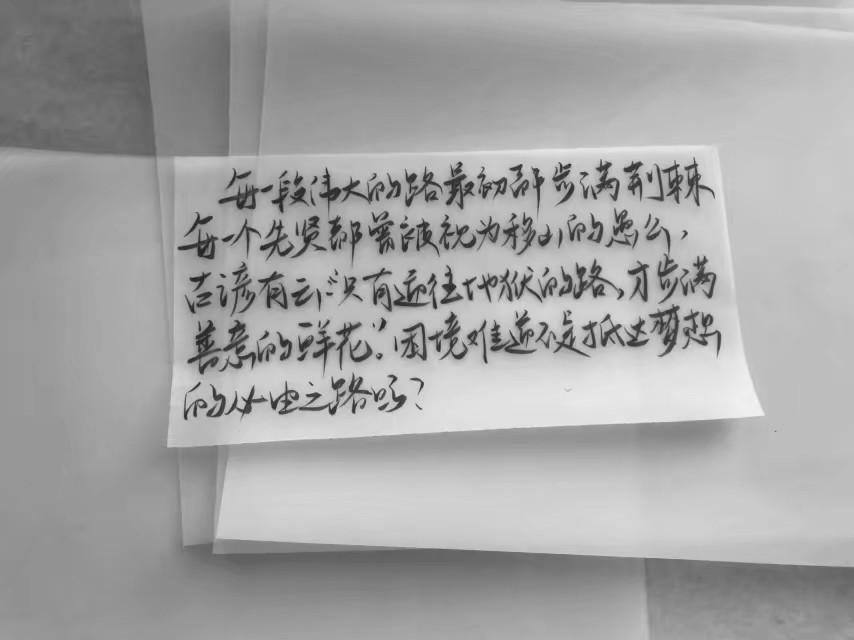 每一段伟大的路最初都步满荆棘
每一个先贤都曾被视为移山的愚公,
古谚有云:“只有通往地狱的路,才步满
善意的鲜花”.困境难道不是抵达梦想
的必由之路吗?